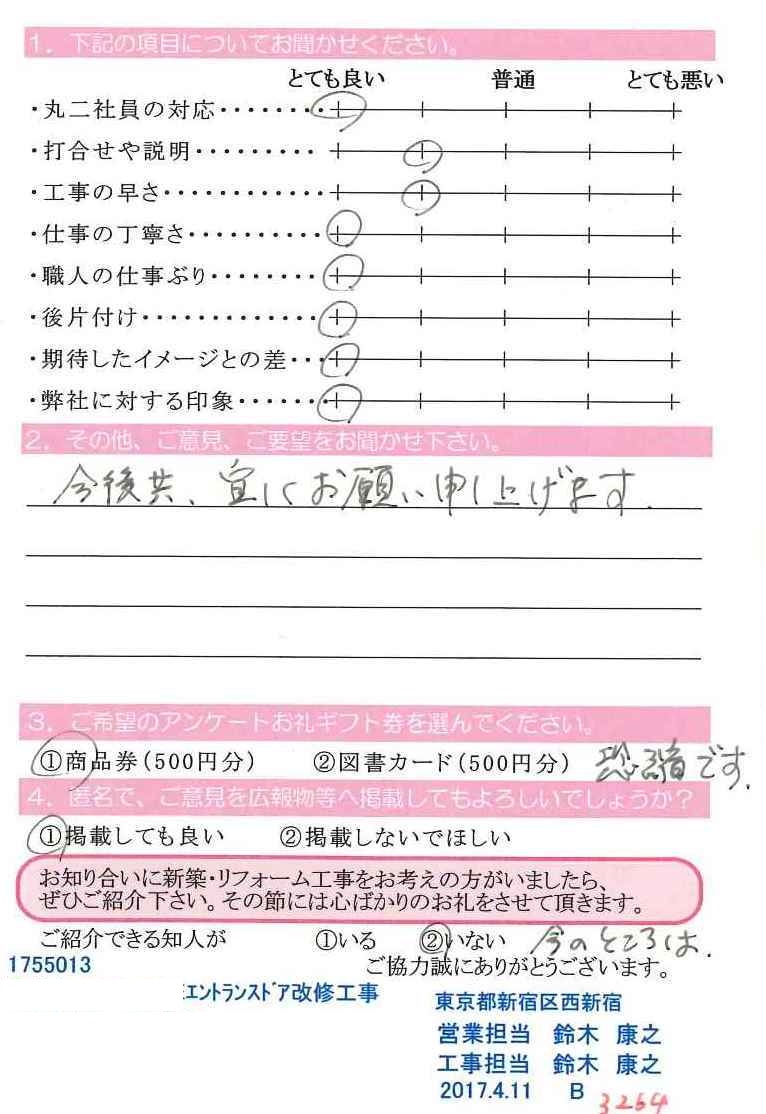 1．下記の項目についてお聞かせください。
とても良い 普通 とても悪い
・丸二社員の対応・・・・・・・・
・打合せや説明・・・・・・・・・
・工事の早さ・・・・・・・・・・・・
・仕事の丁寧さ・・・・・・・・・・
・職人の仕事ぶり・・・・・・・・
・後片付け・・・・・・・・・・・・・
・期待したイメージとの差・・・
・弊社に対する印象・・・・・・・
2．その他、ご意見、ご要望をお聞かせ下さい。
今後共、宜しくお願い申し上げます.
3．ご希望のアンケートお礼ギフト券を選んでください。
①商品券（500円分） ②図書カード（500円分） 恐縮です.
4．匿名で、ご意見を広報物等へ掲載してもよろしいでしょうか？
①掲載しても良い ②掲載しないでほしい
お知り合いに新築・リフォーム工事をお考えの方がいましたら、
ぜひご紹介下さい。その節には心ばかりのお礼をさせて頂きます。
ご紹介できる知人が ①いる ②いない 今のところは.
1755013 ご協力誠にありがとうございます。
エントランスドア改修工事 東京都新宿区西新宿
営業担当 鈴木 康之
工事担当 鈴木 康之
2017.4.11 B 3264